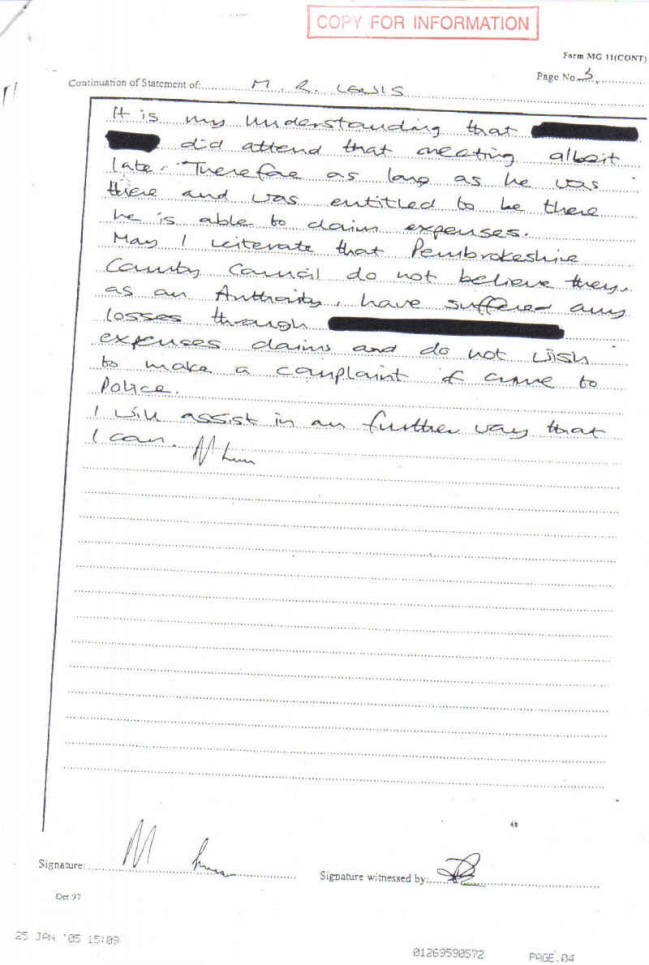 COPY FOR INFORMATION
Form MG 11(CONT)
Page No. 3.
Continuation of Statement of: M. R. Lewis
It is my understanding that
did attend that meeting albeit
late. Therefore as long as he was
there and was entitled to be there
he is able to claim expenses.
May I reiterate that Pembrokeshire
County Council do not believe they,
as an Authority, have suffered any
losses through
expenses claims and do not wish
to make a complaint of crime to
Police.
I will assist in any further way that
I can.
48
Signature:
Signature witnessed by:
Oct 97
25 JAN '05 15:09
01269590572
PAGE.04